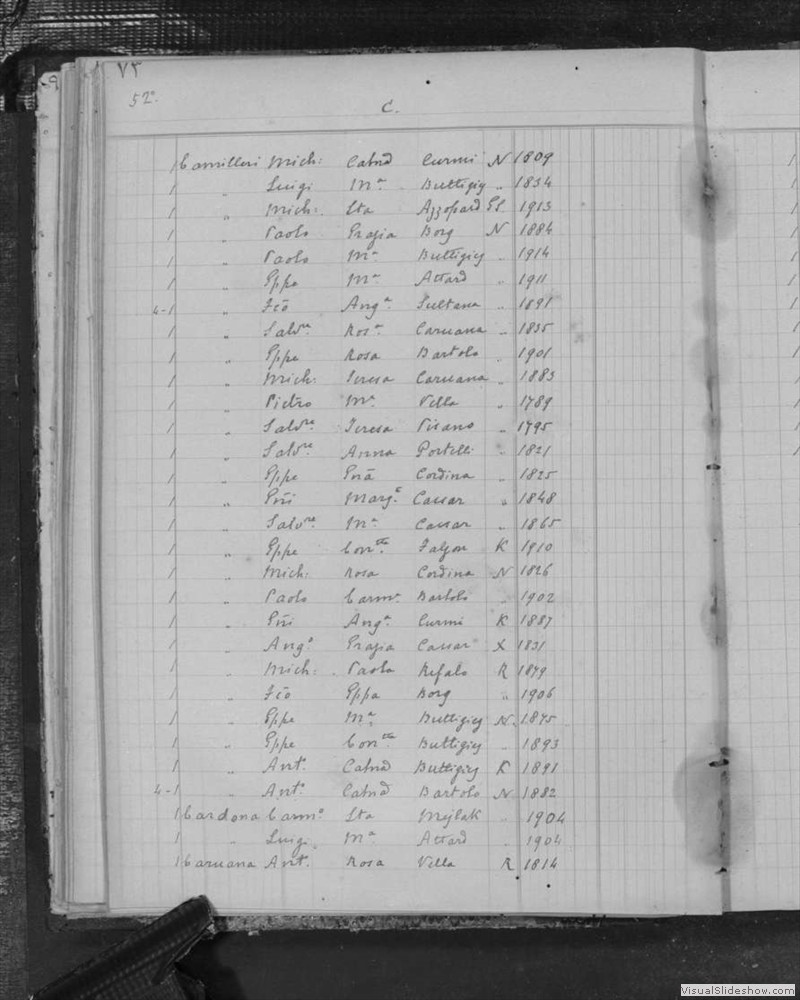 ٧٢
52º.
C.
1 Camilleri Mich: Catnã Curmi N 1809
1 " Luigi Mª Buttigieg " 1834
1 " Mich: Sta Azzopard GL 1913
1 " Paolo Grazia Borg N 1884
1 " Paolo Mª Buttigieg " 1914
1 " Gppe Mª Attard " 1911
4-1 " Fcõ Angª Sultana " 1891
1 " Salvre Rosª Caruana " 1835
1 " Gppe Rosa Bartolo " 1901
1 " Mich: Teresa Caruana " 1883
1 " Pietro Mª Vella " 1789
1 " Salvre Teresa Pisano " 1795
1 " Salvre Anna Portelli " 1821
1 " Gppe Gnã Cordina " 1825
1 " Gñi Margª Cassar " 1848
1 " Salvre Mª Cassar " 1865
1 " Gppe Contta Falzon K 1910
1 " Mich: Rosa Cordina N 1826
1 " Paolo Carmª Bartolo " 1902
1 " Gñi Angª Curmi K 1887
1 " Angº Grazia Cassar X 1831
1 " Mich: Paola Refalo R 1879
1 " Fcõ Gppa Borg " 1906
1 " Gppe Mª Buttigieg N 1875
1 " Gppe Contta Buttigieg " 1893
1 " Antº Catnã Buttigieg K 1891
4-1 " Antº Catnã Bartolo N 1882
1 Cardona Carmº Sta Mejlak " 1904
1 " Luigi Mª Attard " 1904
1 Caruana Antº Rosa Vella R 1814
VisualSlideshow.com